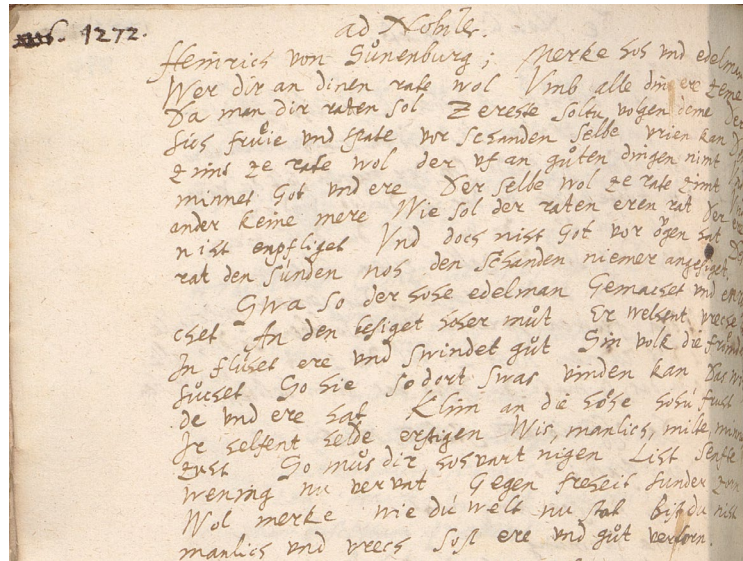 1272.
ad Nobiles.
Heinrich von Sůnenburg; Merke hoh vnd edelman
Wer dir an dinen rate wol Vmb alle ding ere zeme
Da man dir raten sol Zereste soltu volgen deme Der
sich frůie vnd spate vor schanden selbe vrien kan
zimt ze rate wol der vf an gůten dingen nimt
minnet Got vnd ere Der selbe wol ze rate zimt
ander keine mere Wie sol der raten eren rat Der
niht enpfliget Vnd doch niht Got vor ögen hat
rat den sůnden noh den schanden niemer angesiget
Swa so der hohe edelman Gemachet vnd
chet An den besiget hoher můt Er welhent vreche
In flůhet ere vnd swindet gůt Sin volk die
sůchet So hie so dort swas vinden kan Das
de vnd ere hat Klim an die höhe hohú fruht
Ir helfent selde erstigen Wis, manlich, milte,
zuht So můs dir hohvart nigen List senfte
wening nu vervat Gegen freheit sunder zorn
Wol merke wie dú welt nu stat bist du niht
manlich vnd vrech Sost ere vnd gůt verlorn.